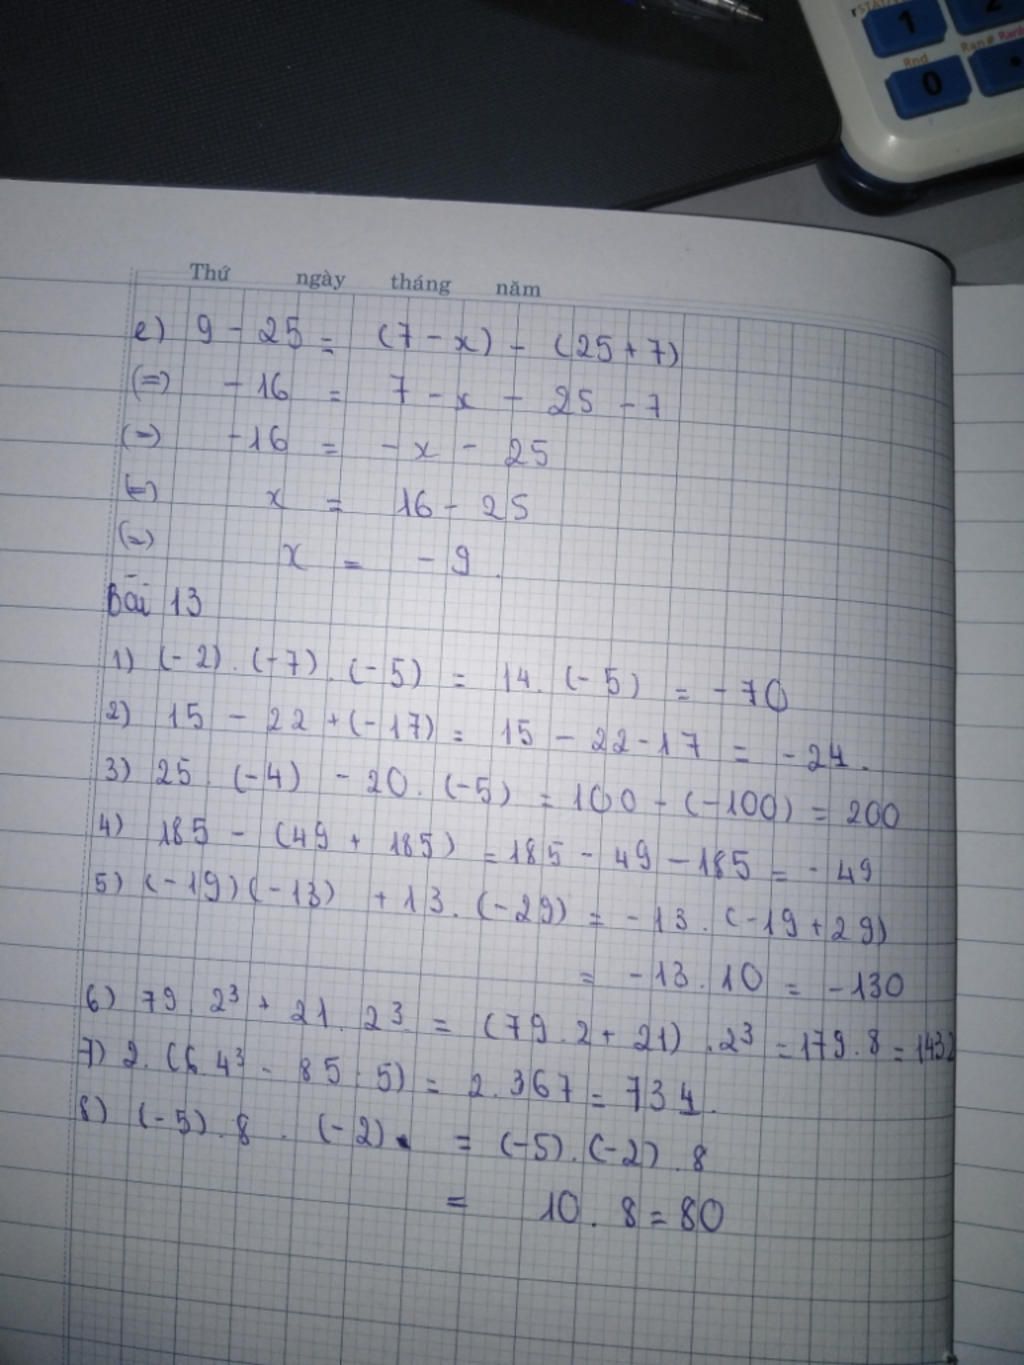 rSTAT
1
2
Rnd
Ran#
0
Thứ ngày tháng năm
e) 9 - 25 = (7 - x) - (25 + 7)
(=) - 16 = 7 - x - 25 - 7
(=) - 16 = - x - 25
(=) x = 16 - 25
(=) x = - 9.
Bài 13
1) (-2).(-7).(-5) = 14.(-5) = -70
2) 15 - 22 + (-17) = 15 - 22 - 17 = -24.
3) 25.(-4) - 20.(-5) = 100 - (-100) = 200
4) 185 - (49 + 185) = 185 - 49 - 185 = -49
5) (-19)(-13) + 13.(-29) = -13.(-19 + 29)
= -13.10 = -130
6) 79 2³ + 21.2³ = (79.2 + 21).2³ = 179.8 = 1432
7) 2.(6 4³ - 85:5) = 2.367 = 734.
8) (-5).8.(-2) = (-5).(-2).8
= 10.8 = 80